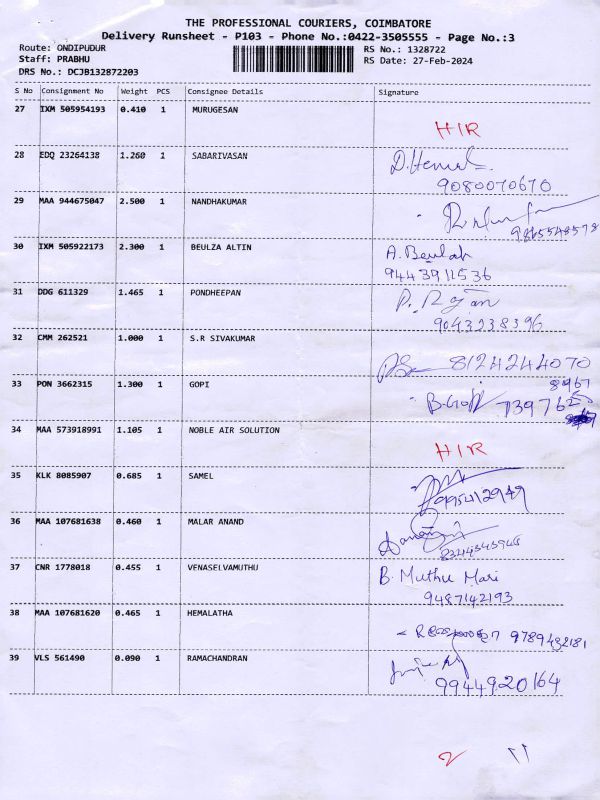 THE PROFESSIONAL COURIERS, COIMBATORE
Delivery Runsheet - P103 - Phone No.:0422-3505555 - Page No.:3
Route: ONDIPUDUR RS No.: 1328722
Staff: PRABHU RS Date: 27-Feb-2024
DRS No.: DCJB132872203
S No Consignment No Weight PCS Consignee Details Signature
27 IXM 505954193 0.410 1 MURUGESAN
HIR
28 EDQ 23264138 1.260 1 SABARIVASAN
9080070670
29 MAA 944675047 2.500 1 NANDHAKUMAR
30 IXM 505922173 2.300 1 BEULZA ALTIN A. Beulah
9443911536
31 DDG 611329 1.465 1 PONDHEEPAN
9043238396
32 CMM 262521 1.000 1 S.R SIVAKUMAR
8124244070
33 PON 3662315 1.300 1 GOPI
34 MAA 573918991 1.105 1 NOBLE AIR SOLUTION
HIR
35 KLK 8085907 0.685 1 SAMEL
36 MAA 107681638 0.460 1 MALAR ANAND
37 CNR 1778018 0.455 1 VENASELVAMUTHU B. Muthu Mari
9487142193
38 MAA 107681620 0.465 1 HEMALATHA
9789432181
39 VLS 561490 0.090 1 RAMACHANDRAN
9944920164